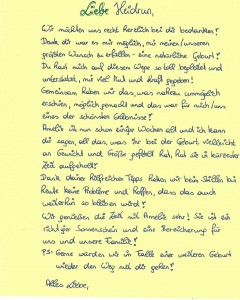 Liebe Heidrun,
Wir möchten uns recht herzlich bei dir bedanken!
Dank dir war es mir möglich, mir meinen/unseren
größten Wunsch zu erfüllen - eine natürliche Geburt!
Du hast mich auf diesem Wege so toll begleitet und
unterstützt, mit viel Mut und Kraft gegeben!
Gemeinsam haben wir das, was nahezu unmöglich
erschien, möglich gemacht und das war für mich/uns
eines der schönsten Erlebnisse!
Amelie ist nun schon einige Wochen alt und ich kann
dir sagen, all das, was ihr bei der Geburt vielleicht
an Gewicht und Größe gefehlt hat, hat sie in kürzester
Zeit aufgeholt!
Dank deiner hilfreichen Tipps haben wir beim Stillen bis
heute keine Probleme und hoffen, dass das auch
weiterhin so bleiben wird!
Wir genießen die Zeit mit Amelie sehr! Sie ist ein
richtiger Sonnenschein und eine Bereicherung für
uns und unsere Familie!
PS: Gerne würden wir im Falle einer weiteren Geburt
wieder den Weg mit dir gehen!
Alles Liebe,